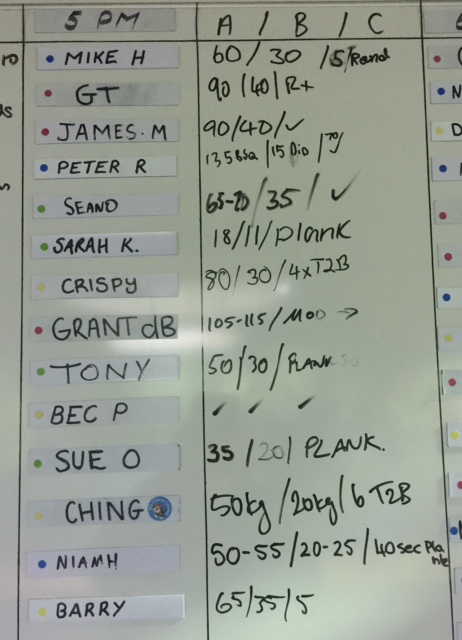 5 PM A / B / C
MIKE H 60 / 30 / 5/Rand
GT 90 / 40 / R+
JAMES.M 90/40/✓
PETER R 135 / 15 / 70
SEANO 65-70 / 35 / ✓
SARAH K. 18/11/plank
CRISPY 80 / 30 / 4xT2B
GRANT dB 105-115 / MOD →
TONY 50 / 30 / PLANK
BEC P ✓ ✓ ✓
SUE O 35 / 20 / PLANK.
CHING 50kg / 20kg / 6 T2B
NIAMH 50-55 / 20-25 / 40sec Pla
nk
BARRY 65/35/5